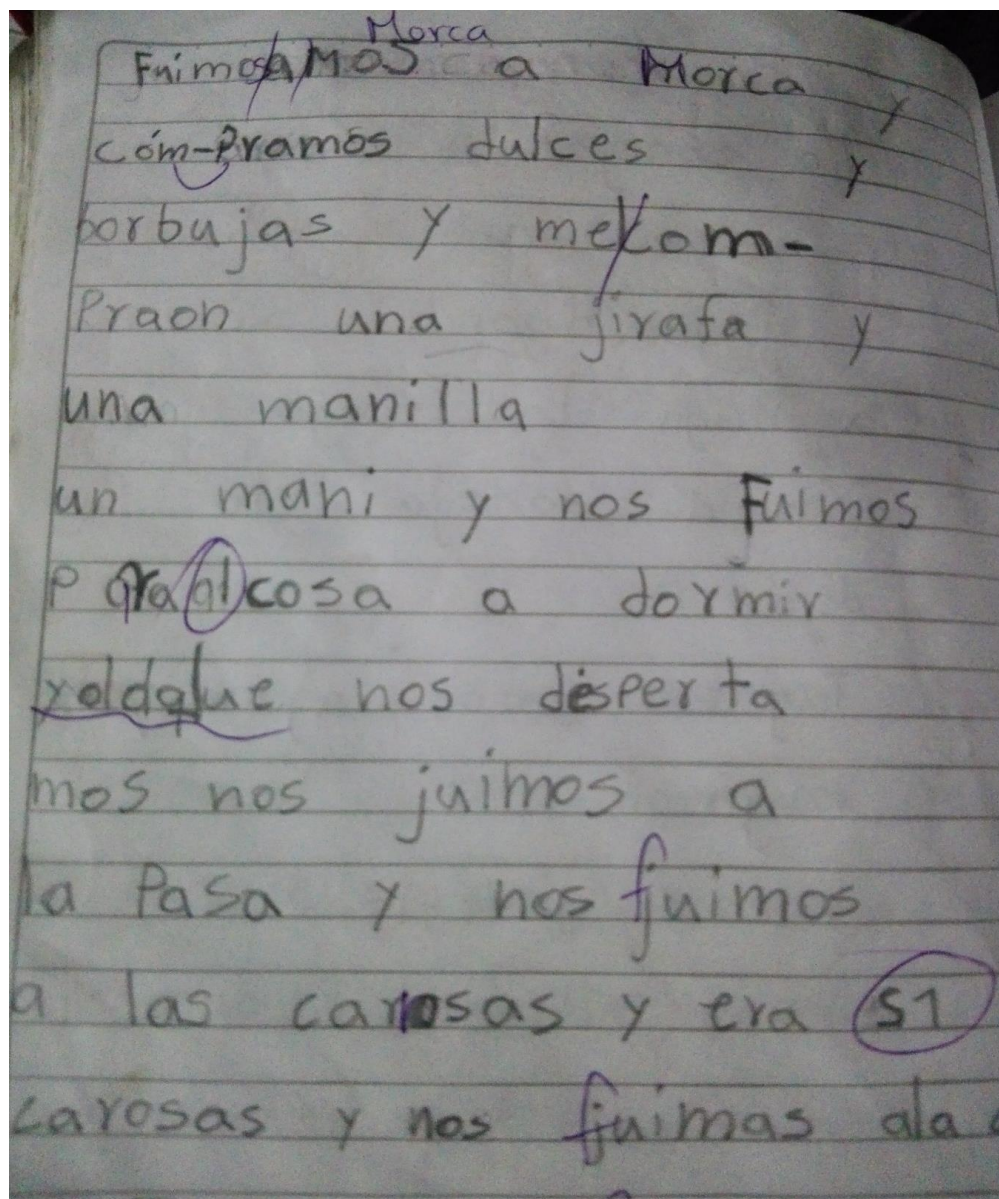 Morca
FuimosaMOS a Morca y
com-Pramos dulces y
borbujas y me com-
Praon una jirafa y
una manilla
un mani y nos Fuimos
P ara al cosa a dormir
nos desperta
mos nos juimos a
la Pasa y nos fuimos
a las carosas y era 51
carosas y nos fuimas ala